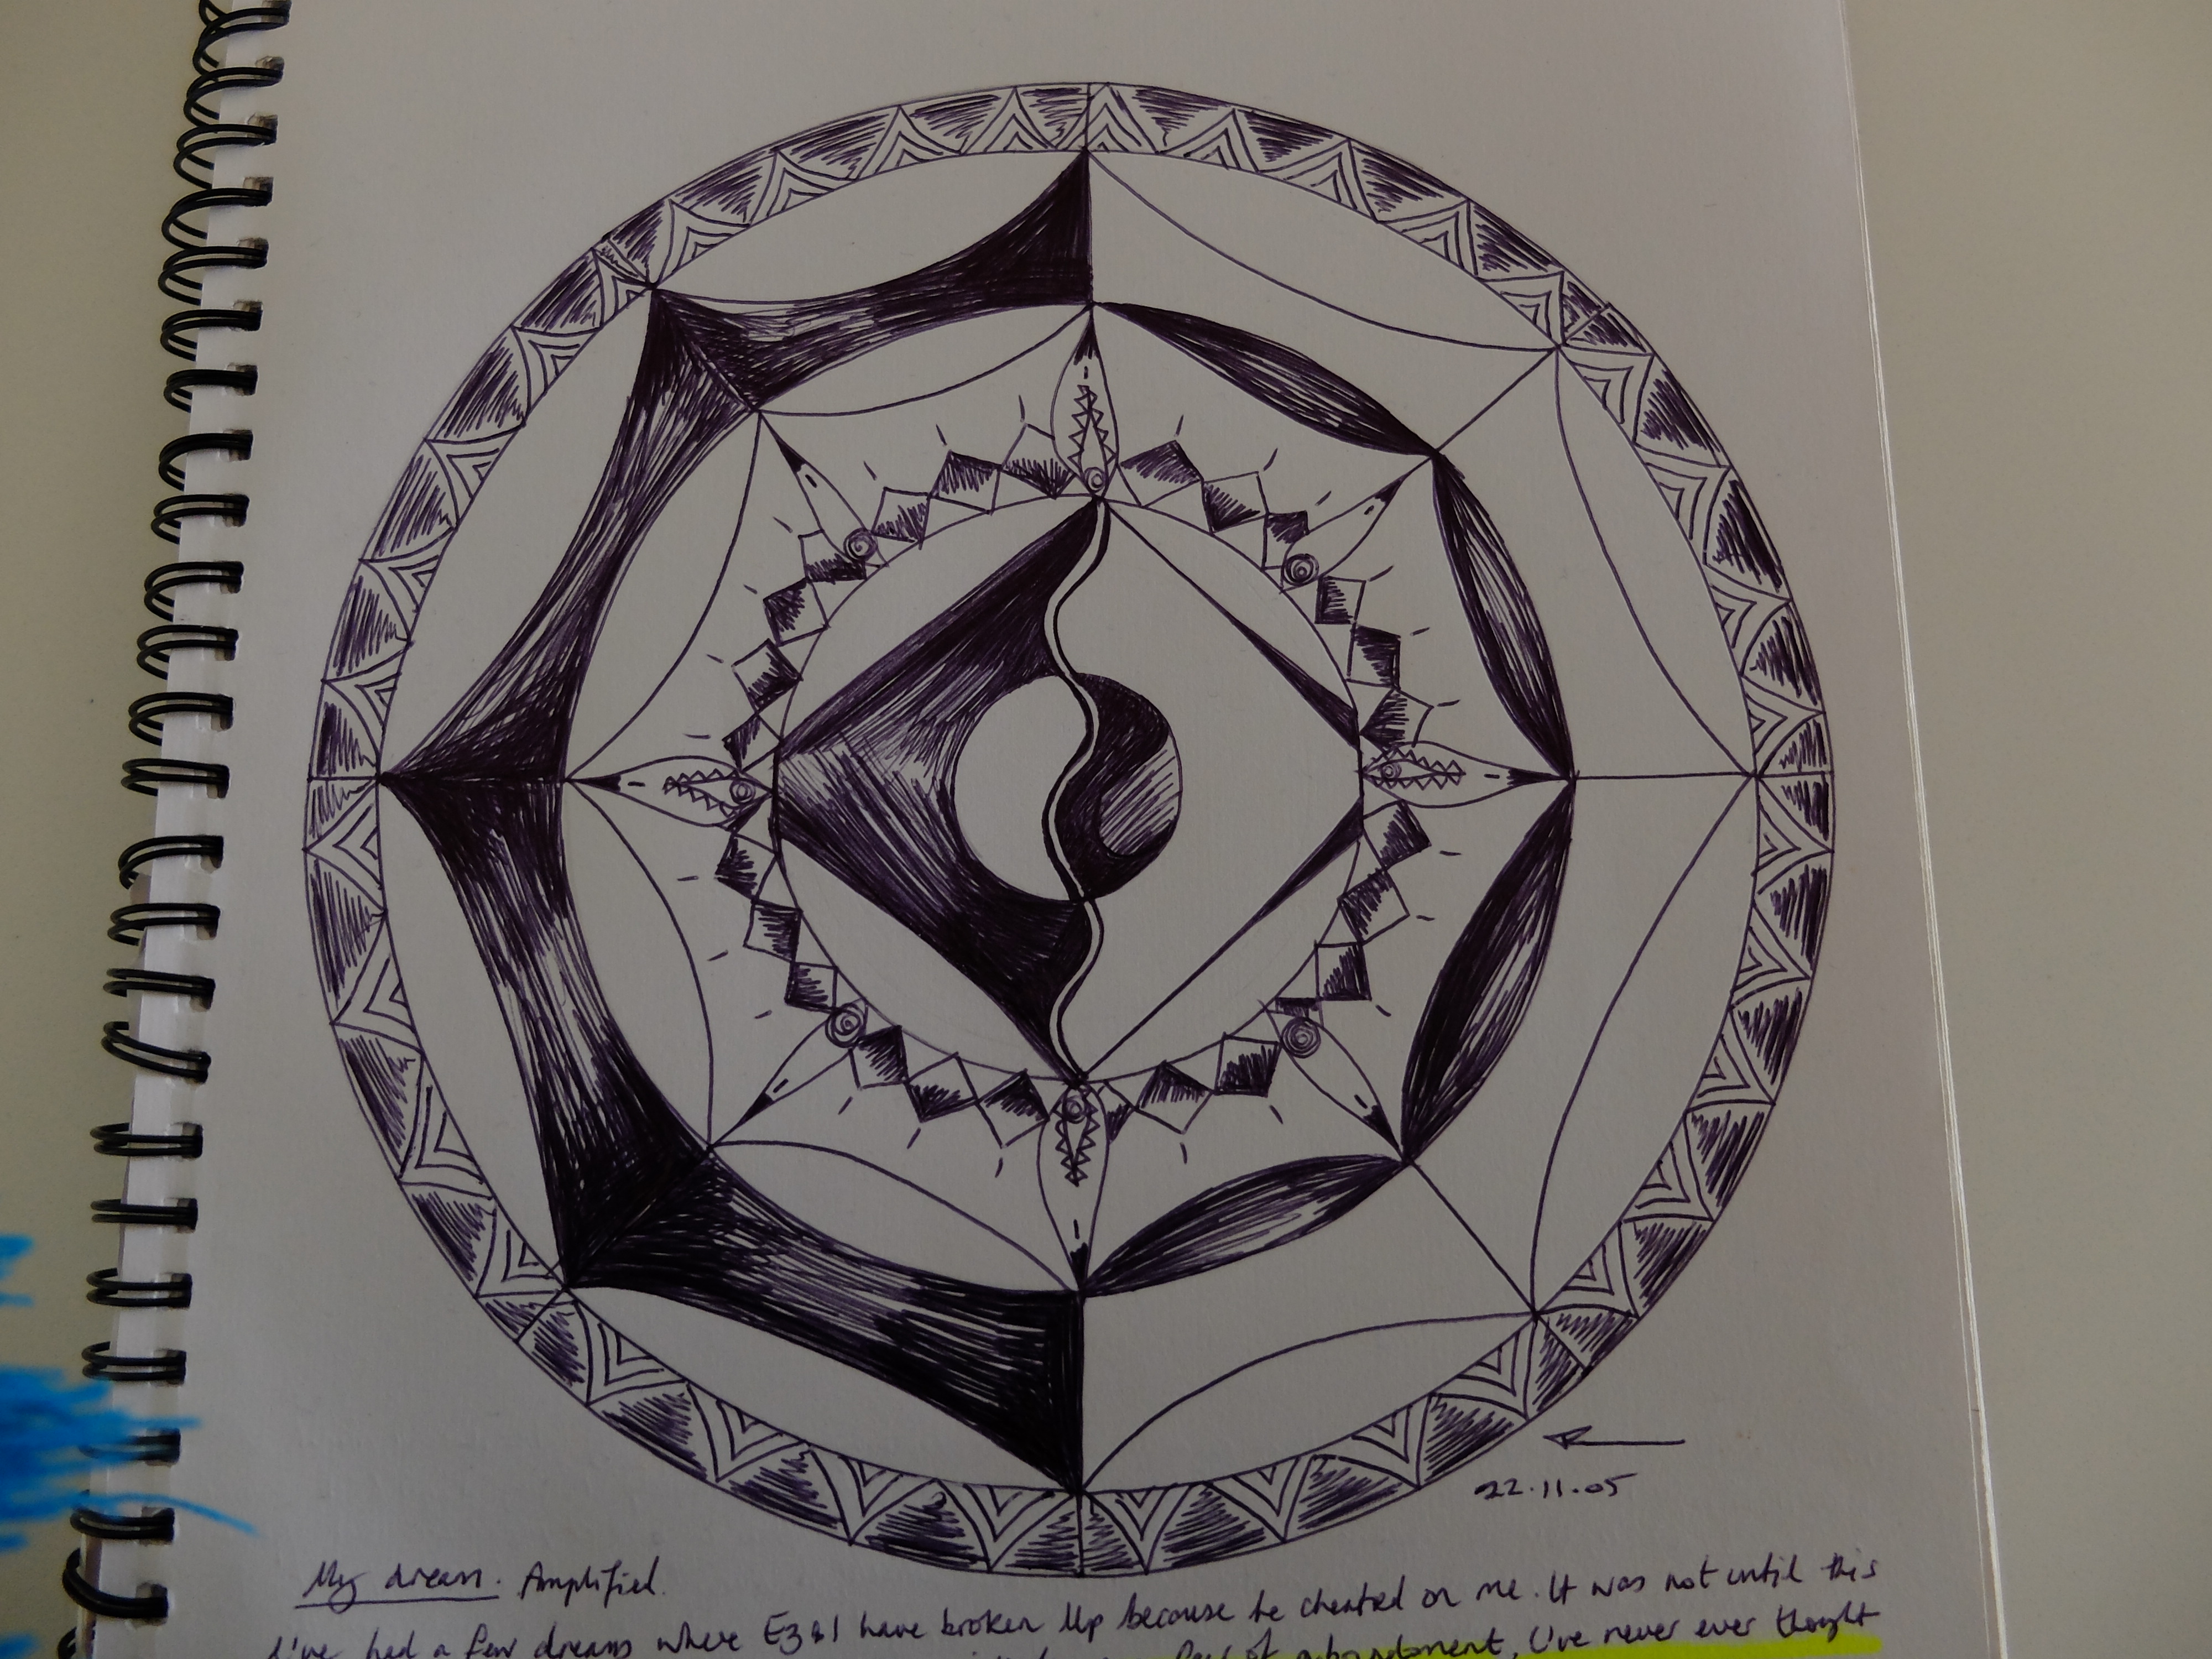 22.11.05
My dream. Amplified.
I've had a few dreams where Ez & I have broken up because he cheated on me. It was not until this
fear of abandoment, I've never ever thought